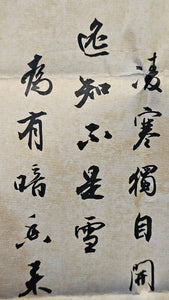 凌寒獨自開
遙知不是雪
為有暗香來